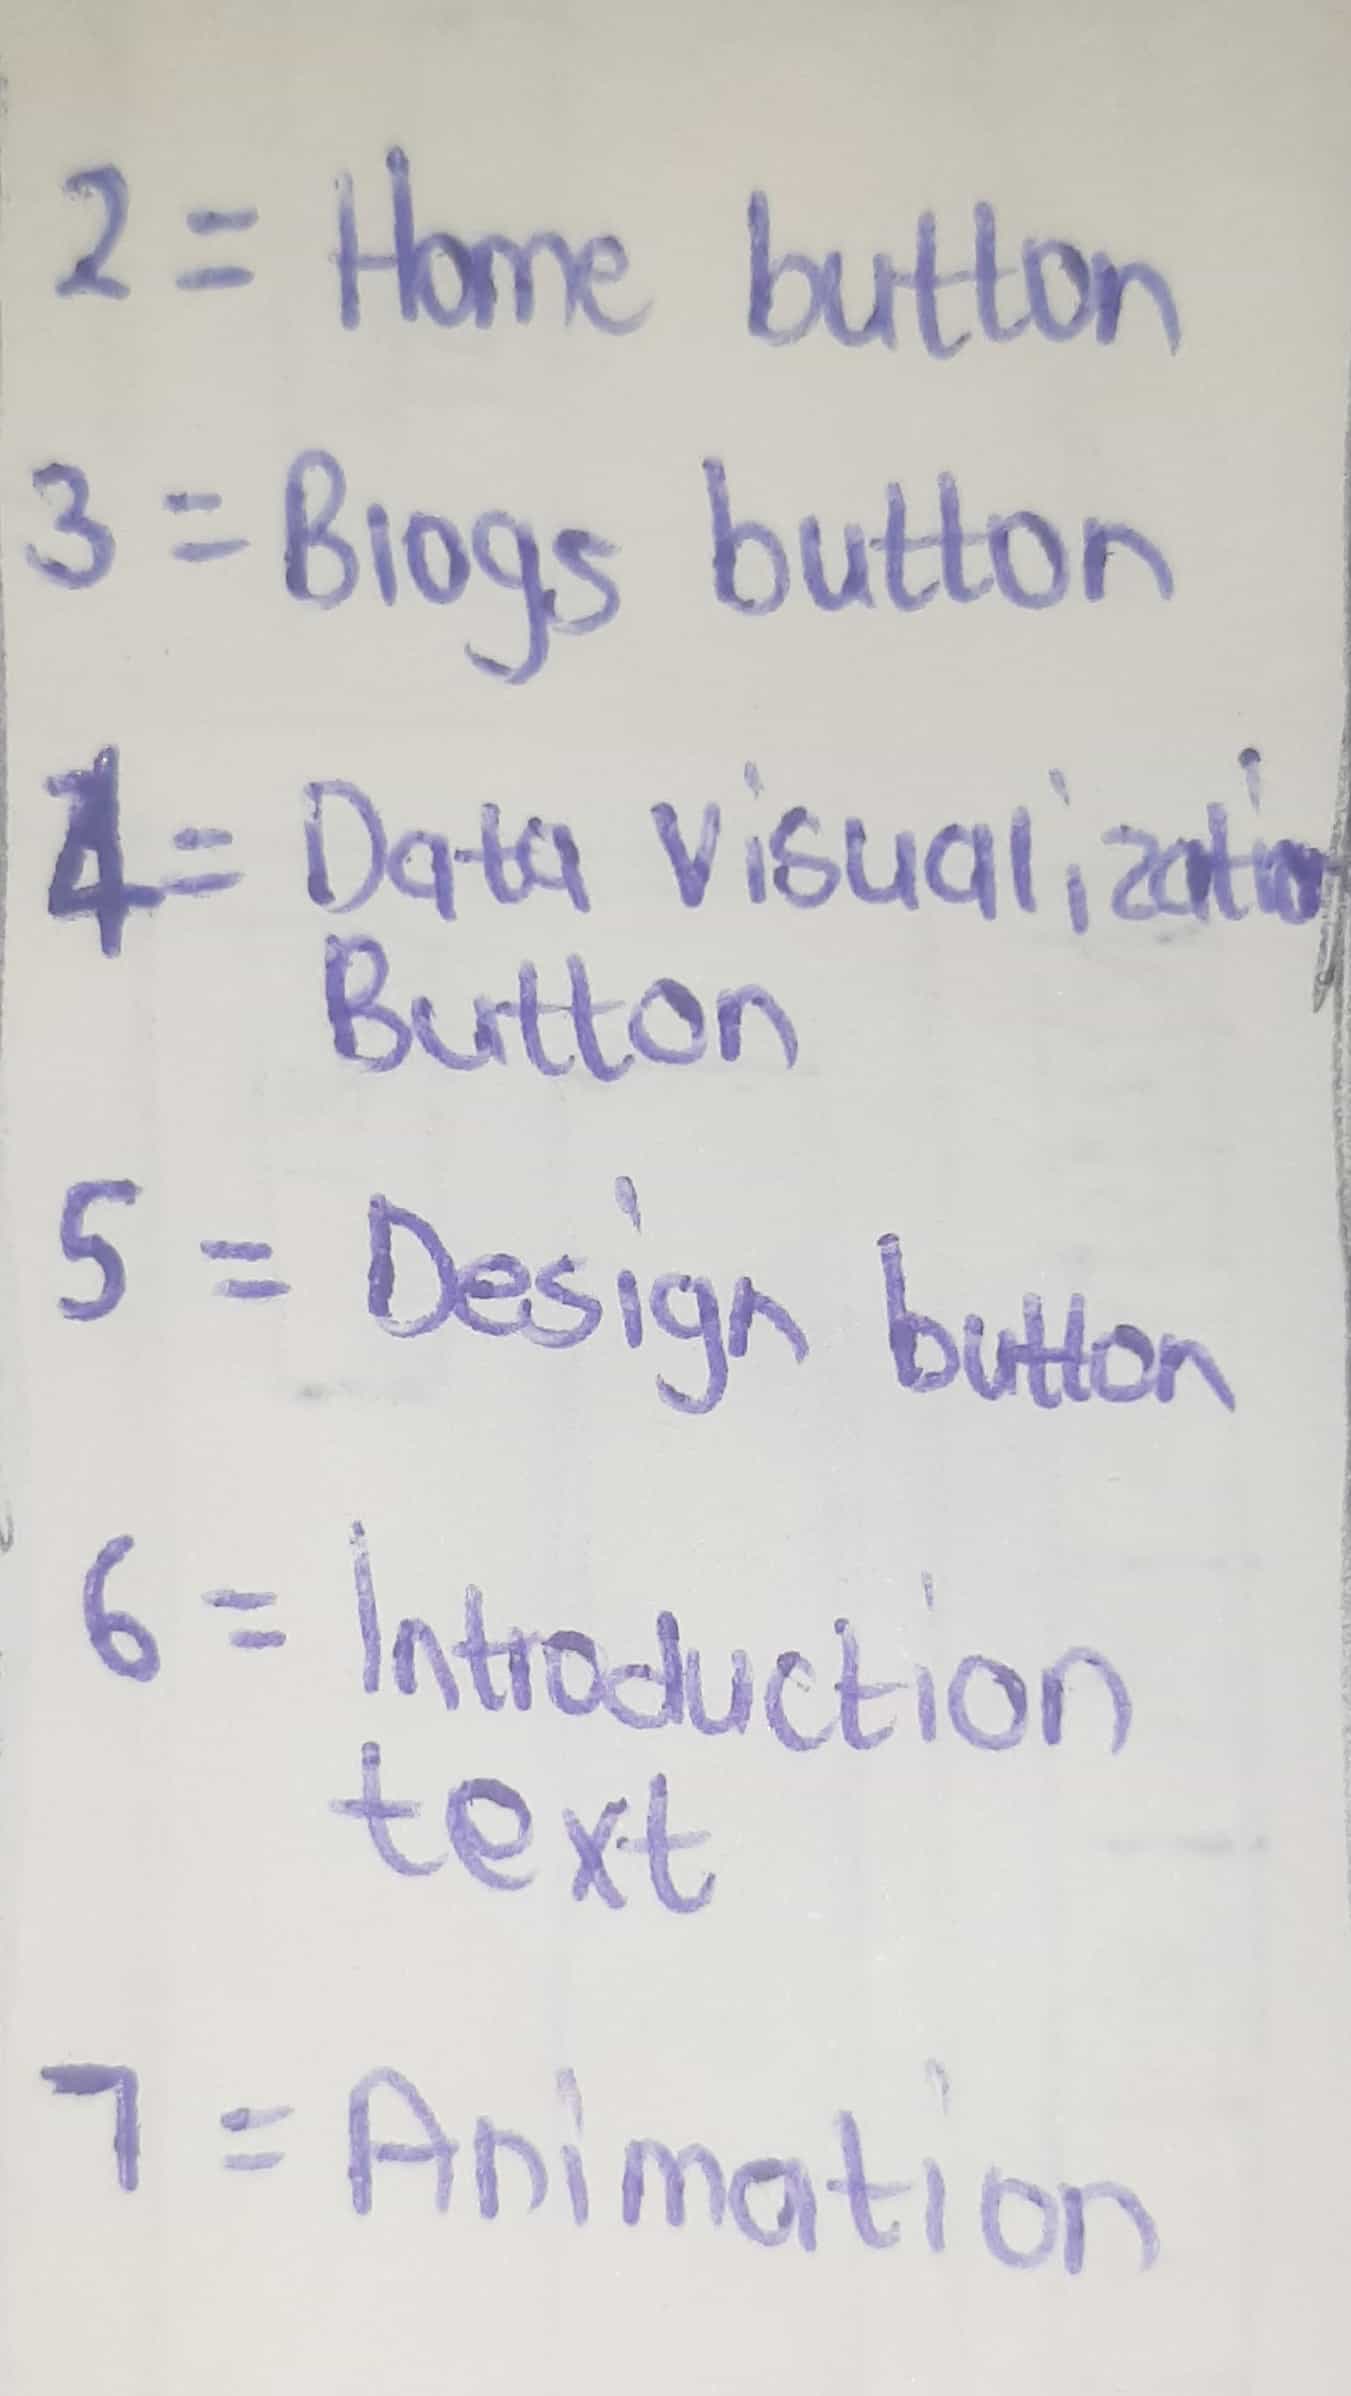 2 = Home button
3 = Blogs button
4 = Data Visualization
Button
5 = Design button
6 = Introduction
text
7 = Animation